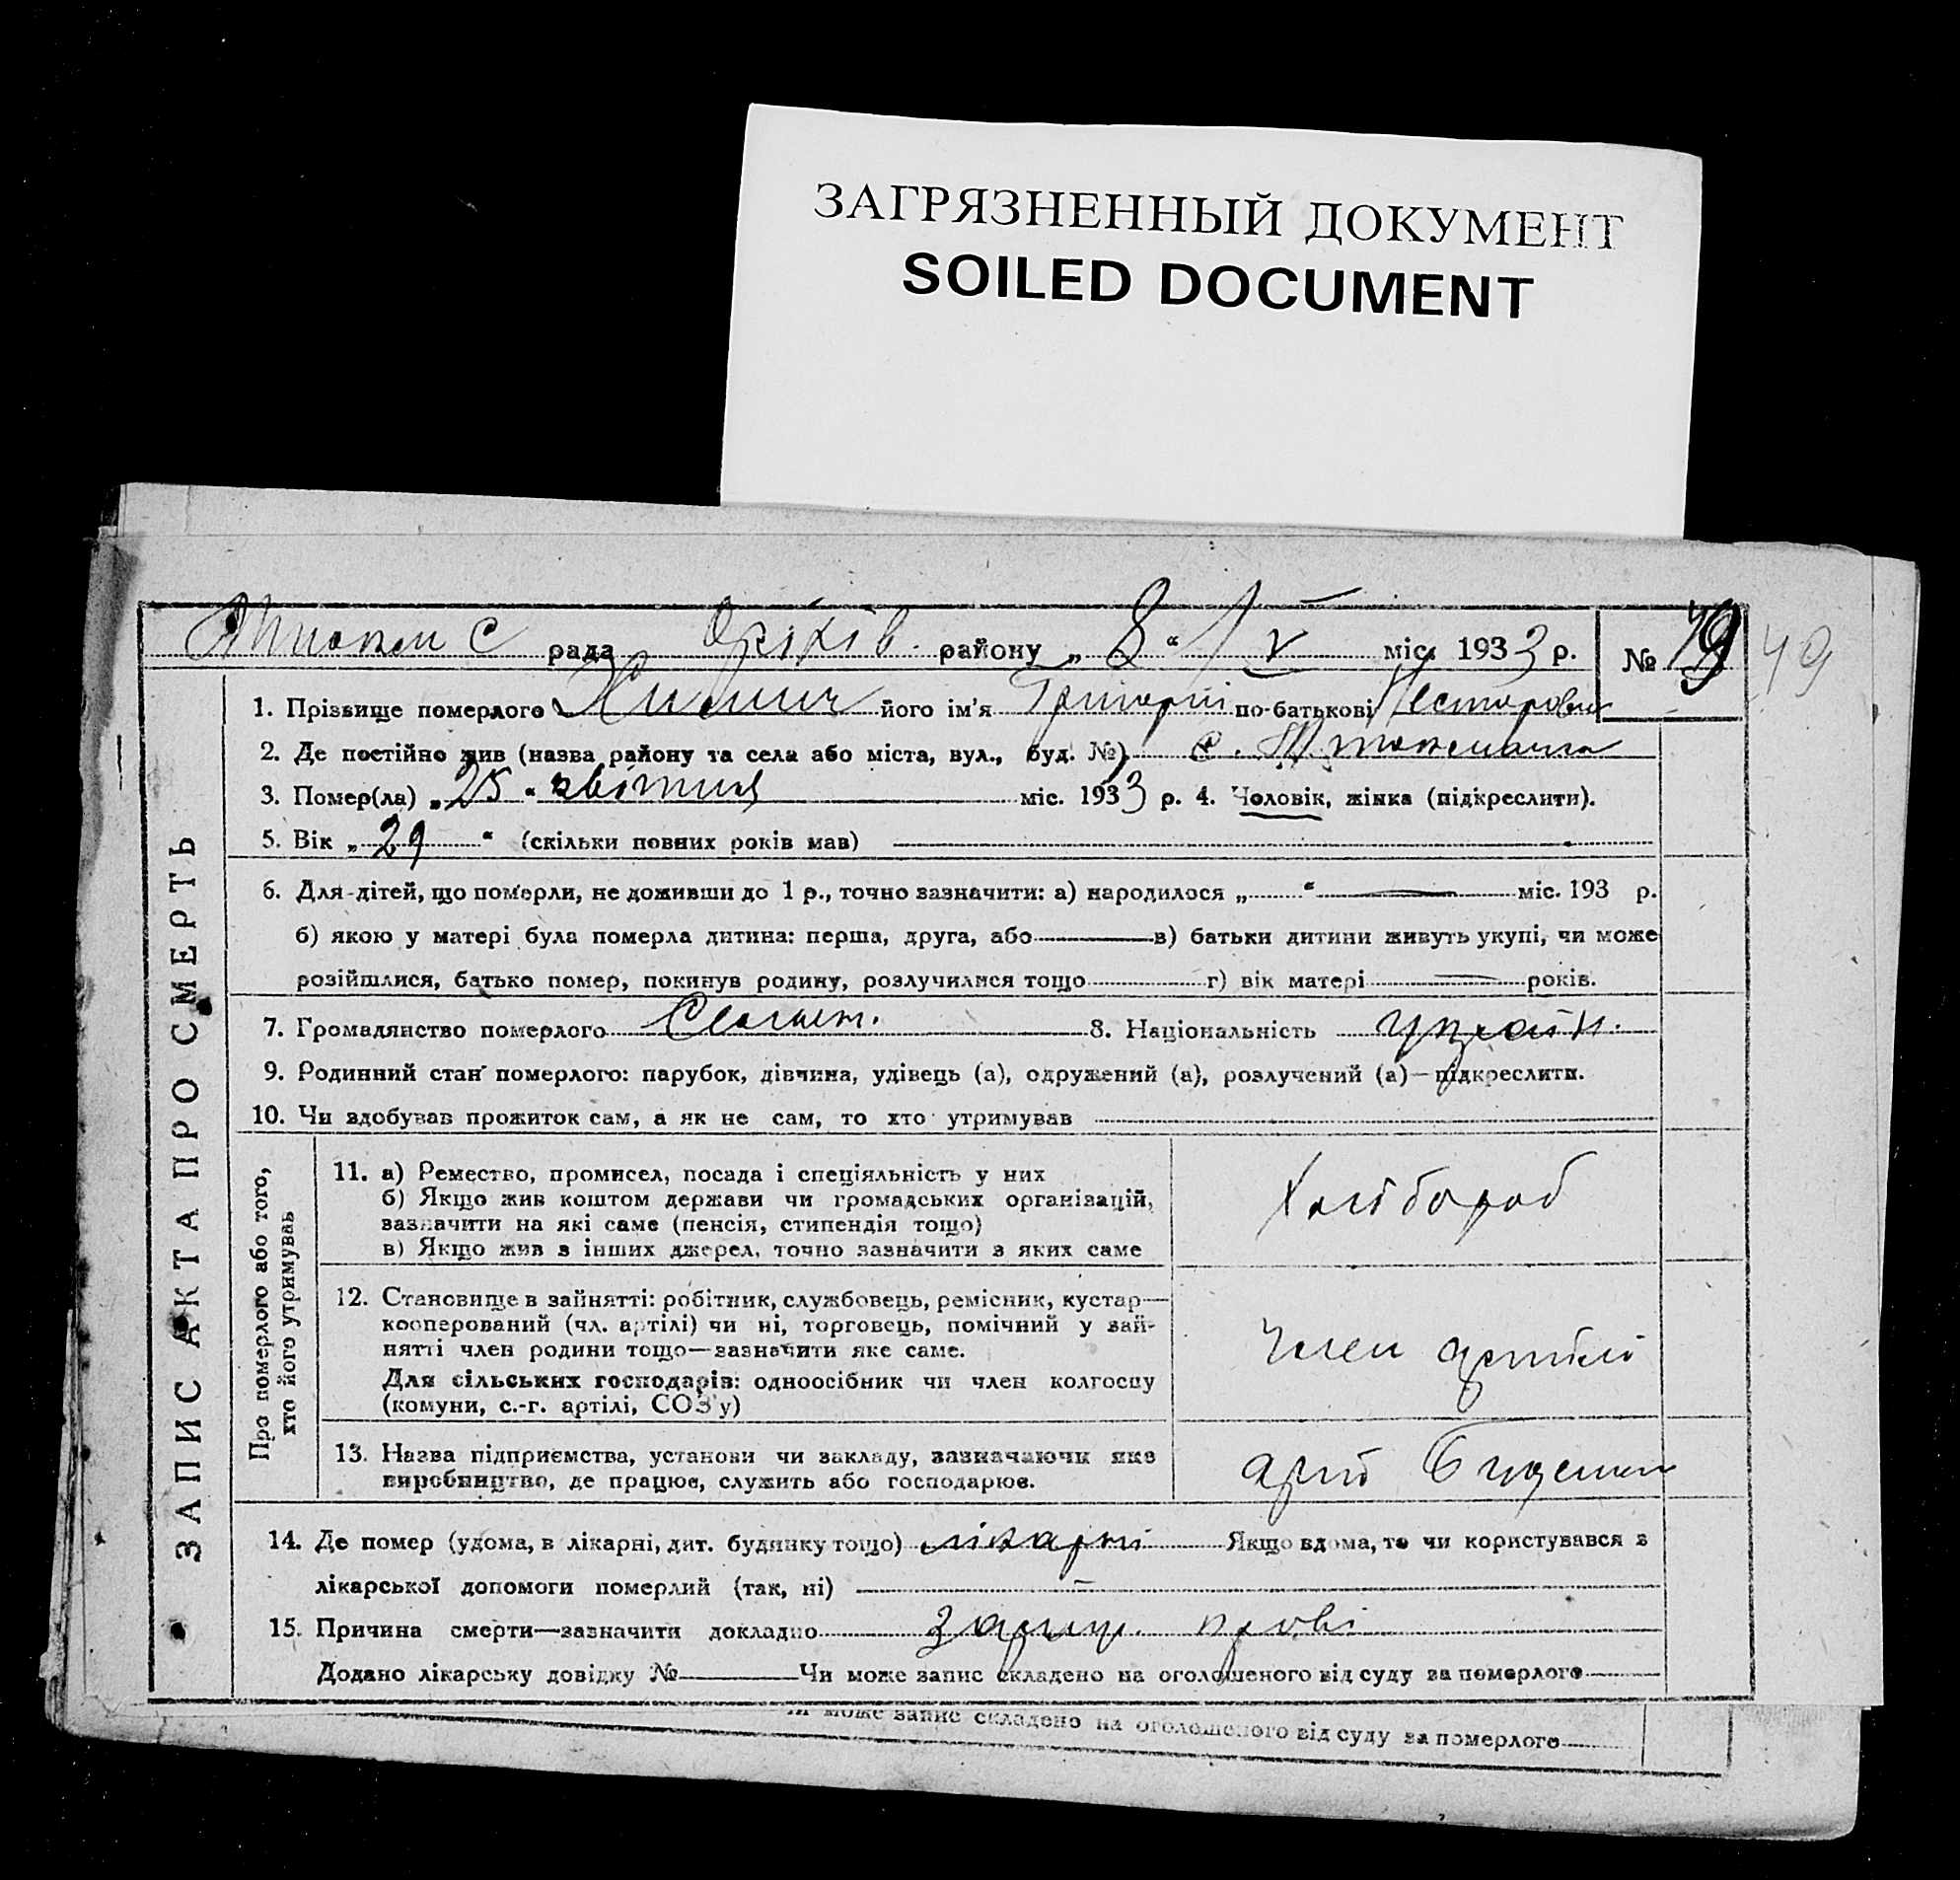 ЗАГРЯЗНЕННЫЙ ДОКУМЕНТ
SOILED DOCUMENT
рада Оріхів. району „ 8 “ V міс. 1933 р. № 49 49
1. Прізвище померлого його ім'я Григорій по-батькові Несторович
2. Де постійно жив (назва району та села або міста, вул., буд. №) с.
3. Помер(ла) „25“ квітня міс. 1933 р. 4. Чоловік, жінка (підкреслити).
5. Вік „29“ (скільки повних років мав)
6. Для дітей, що померли, не доживши до 1 р., точно зазначити: а) народилося „ “ міс. 193 р.
б) якою у матері була померла дитина: перша, друга, або в) батьки дитини живуть укупі, чи може
розійшлися, батько помер, покинув родину, розлучилися тощо г) вік матері років.
7. Громадянство померлого 8. Національність україн.
9. Родинний стан померлого: парубок, дівчина, удівець (а), одружений (а), розлучений (а)—підкреслити.
10. Чи здобував прожиток сам, а як не сам, то хто утримував
ЗАПИС АКТА ПРО СМЕРТЬ
Про померлого або того,
хто його утримував
11. а) Ремество, промисел, посада і спеціяльність у них
б) Якщо жив коштом держави чи громадських організацій,
зазначити на які саме (пенсія, стипендія тощо)
в) Якщо жив з інших джерел, точно зазначити з яких саме
Хлібороб
12. Становище в зайнятті: робітник, службовець, ремісник, кустар—
кооперований (чл. артілі) чи ні, торговець, помічний у зай-
нятті член родини тощо—зазначити яке саме.
Для сільських господарів: одноосібник чи член колгоспу
(комуни, с.-г. артілі, СОЗ'у)
член артілі
13. Назва підприємства, установи чи закладу, зазначаючи яке
виробництво, де працює, служить або господарює.
арт
14. Де помер (удома, в лікарні, дит. будинку тощо) лікарні Якщо вдома, то чи користувався з
лікарської допомоги померлий (так, ні) —
15. Причина смерти—зазначити докладно крові
Додано лікарську довідку № Чи може запис складено на оголошеного від суду за померлого
Чи може запис складено на оголошеного від суду за померлого